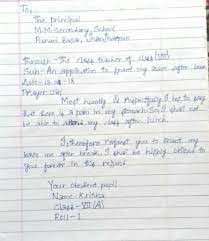 To,
The principal
M.M. Secondary School
Purani Bazar,
Through - The class teacher of class
Sub - An application to grant my leave after lunch
Sir,
Most humbly & respectfully I beg to say
that there is a pain in my stomach. So I shall not
be able to attend my class after lunch.
I therefore request you to grant my
leave me after break. I shall be highly obliged to
you forever in this regard.
Your obedient pupil
Name - Krishna
Class - VII (A)
Roll - 1